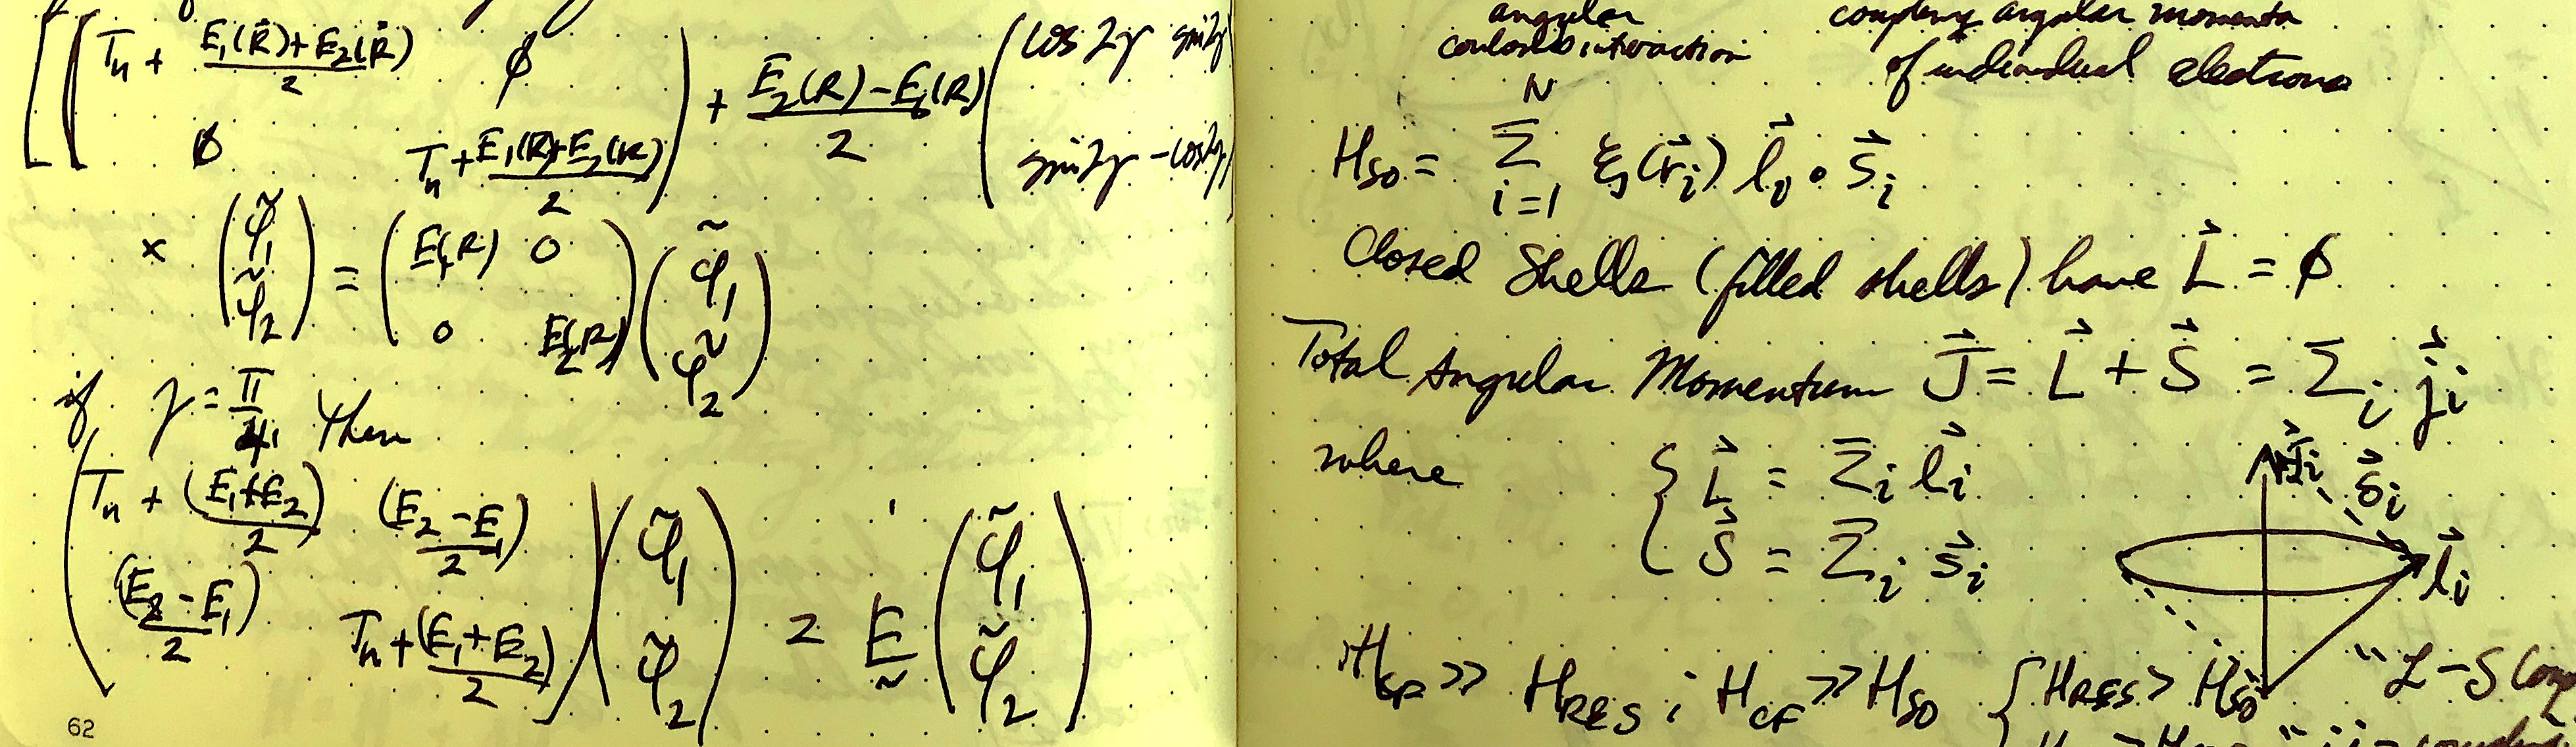 [ ( Tn + (E₁(R⃗)+E₂(R⃗))/2   ∅
∅   Tn + (E₁(R)+E₂(R))/2 ) + (E₂(R)−E₁(R))/2 ( cos2γ sin2γ
sin2γ −cos2γ )
× ( φ̃₁ φ̃₂ ) = ( E₁(R) 0
0 E₂(R) ) ( φ̃₁ φ̃₂ )
if γ = π/4 then
( Tn + (E₁+E₂)/2   (E₂−E₁)/2
(E₂−E₁)/2   Tn + (E₁+E₂)/2 ) ( φ̃₁ φ̃₂ ) = Ḛ ( φ̃₁ φ̃₂ )
62
angular
coulomb interaction
coupling angular momenta
of individual electrons
H_SO = Σ_{i=1}^{N} ξ(r⃗ᵢ) l⃗ᵢ ∘ s⃗ᵢ
Closed Shells (filled shells) have L⃗ = ∅
Total Angular Momentum J⃗ = L⃗ + S⃗ = Σᵢ j⃗ᵢ
where { L⃗ = Σᵢ l⃗ᵢ
S⃗ = Σᵢ s⃗ᵢ
j⃗ᵢ
s⃗ᵢ
l⃗ᵢ
H_CF >> H_RES ; H_CF >> H_SO { H_RES > H_SO "L-S